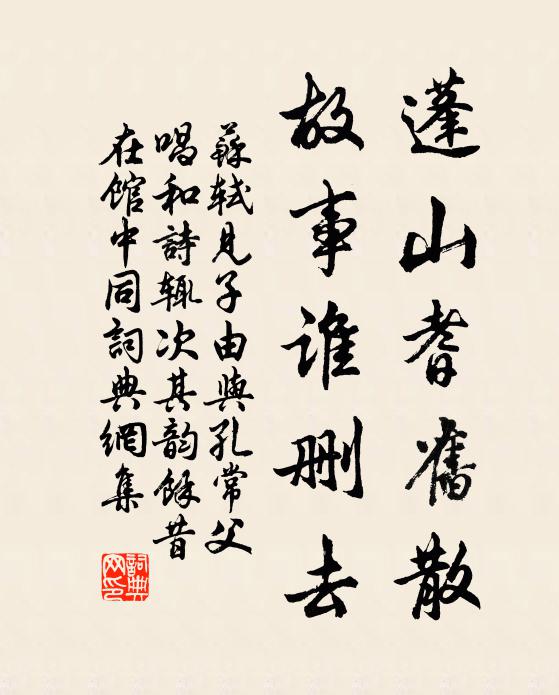 蓬山耆舊散
故事谁删去
蘇軾見子由與孔常父
唱和詩辄次其韵餘昔
在館中同詞典網集
詞典网印